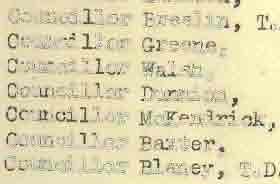 Councillor Breslin, T.
Councillor Greene,
Councillor Walsh,
Councillor
Councillor McKendrick,
Councillor Baxter.
Councillor Blaney, T.D